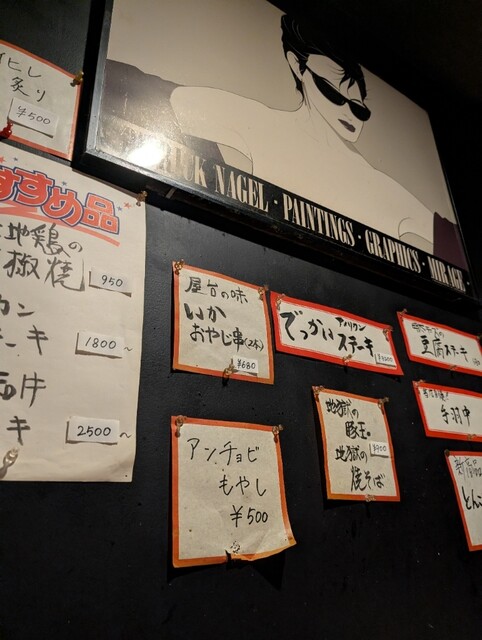 炙り
¥500
すすめ品
地鶏の
椒焼
950
カン
ーキ
1800~
キ
2500~
NAGEL · PAINTINGS · GRAPHICS · MIRAGE
屋台の味
いか
おやじ串(2本)
¥680
アメリカン
でっかいステーキ
豆腐ステーキ
手羽中
地獄の
豚玉。
地獄の
焼そば
¥900
アンチョビ
もやし
¥500
とん